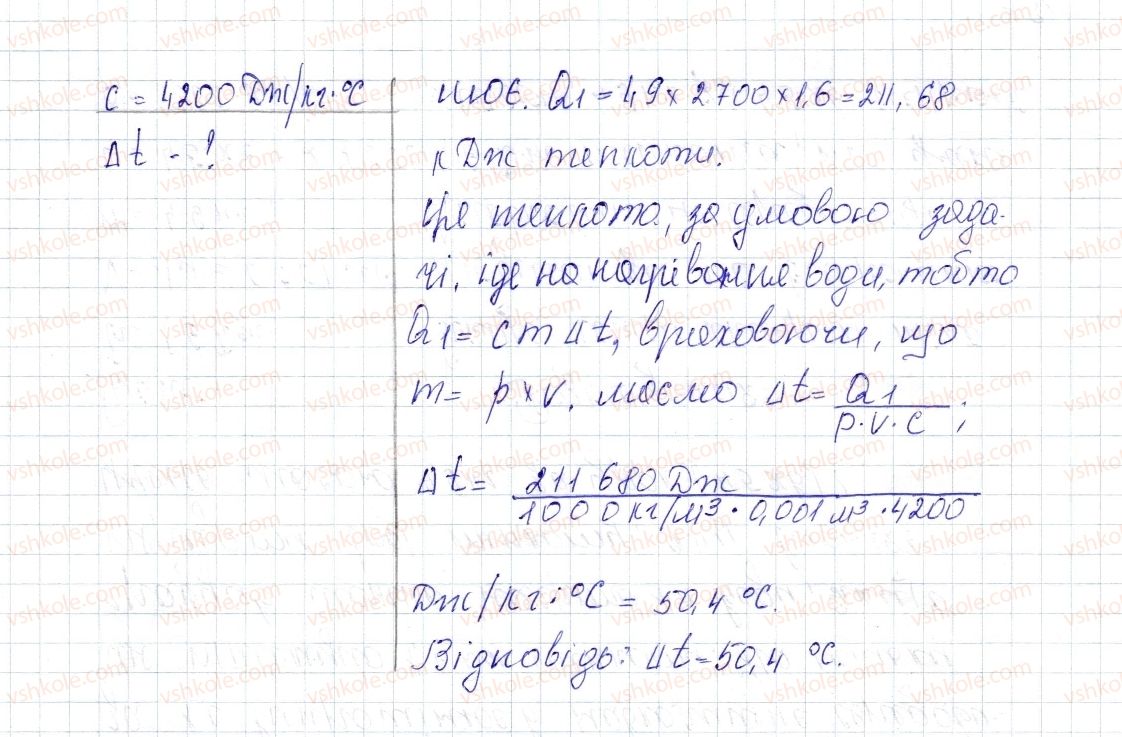 c = 4200 Дж/кг·°C
Δt - ?
шоє. Q1 = 49 × 2700 × 1,6 = 211,68
кДж теплоти.
Ця теплота, за умовою зада-
чі, іде на нагрівання води, тобто
Q1 = cmΔt, враховуючи, що
m = p × v, маємо Δt = Q1 / p·v·c ;
Δt = 211 680 Дж / 1000 кг/м³ · 0,001 м³ · 4200
Дж/кг·°C = 50,4 °C.
Відповідь: Δt = 50,4 °C.